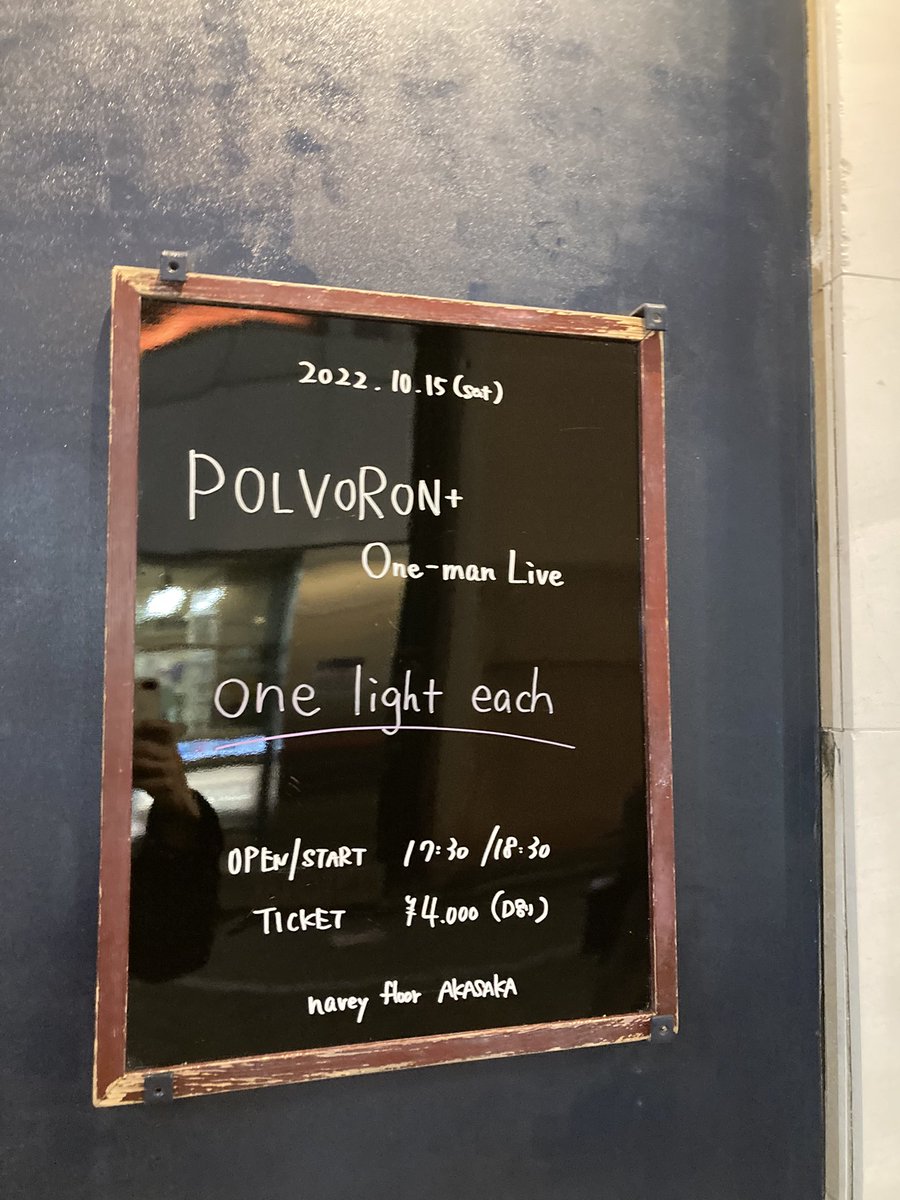 2022.10.15(sat)
POLVORON+
One-man Live
one light each
OPEN/START 17:30/18:30
TICKET ¥4.000 (D別)
navey floor AKASAKA